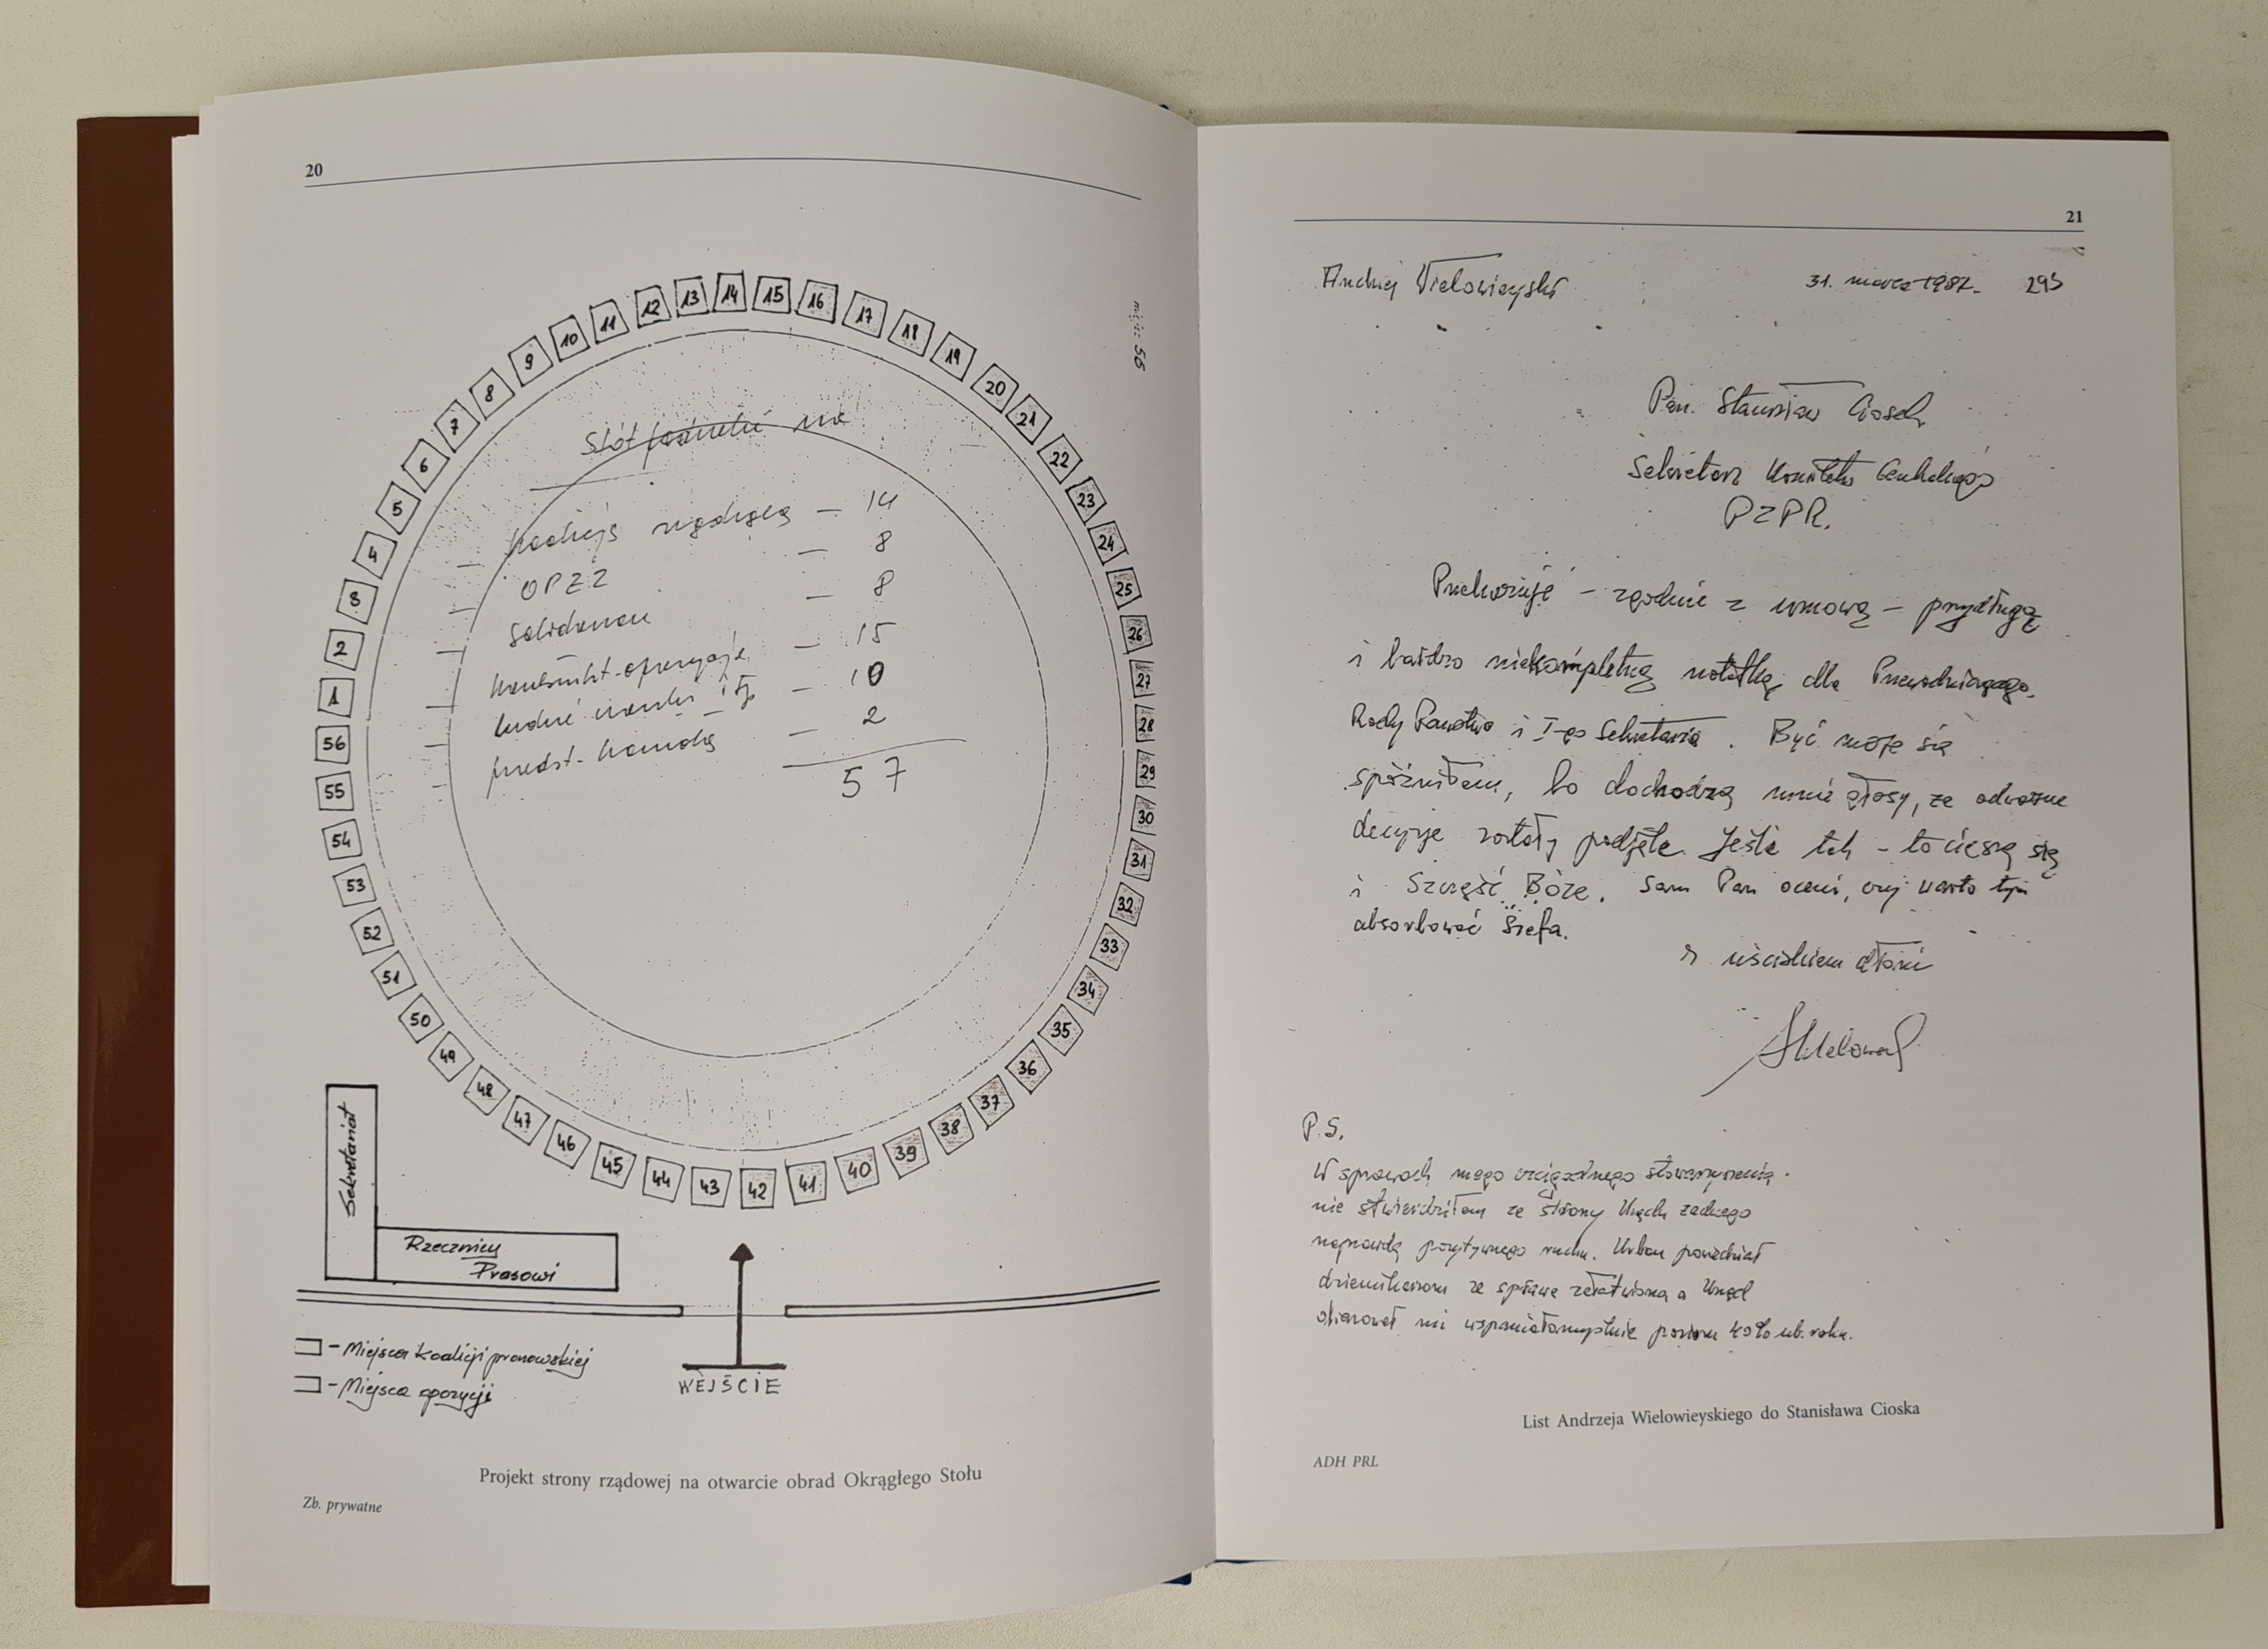 20
12 13 14 15 16
11 17
10 18
9 19
8 20
7 21
6 22
5 23
4 24
3 25
2 26
1 27
56 28
55 29
54 30
53 31
52 32
51 33
50 34
49 35
48 36
47 37
46 38
45 44 43 42 41 40 39
miejsc 56
Stół na
koalicja rządząca — 14
OPZZ — 8
Solidarność — 8
— 15
ludzie itp — 10
przedst. — 2
57
Sekretariat
Rzecznicy
Prasowi
- Miejsca koalicji pronowskiej
- Miejsca opozycji
WEJŚCIE
Projekt strony rządowej na otwarcie obrad Okrągłego Stołu
Zb. prywatne
21
Andrzej Wielowieyski 31. marca 1987. 293
Pan. Stanisław Ciosek
Sekretarz Komitetu Centralnego
PZPR.
Przekazuję - zgodnie z umową - przydługą
i bardzo niekompletną notatkę dla Przewodniczącego
Rady Państwa i I-go Sekretarza. Być może się
spóźniłem, bo dochodzą mnie głosy, że odważne
decyzje zostały podjęte. Jeśli tak - to cieszę się
i Szczęść Boże. Sam Pan oceni, czy warto tym
absorbować Szefa.
z uściskiem dłoni
P.S.
W sprawach mego stowarzyszenia
nie stwierdziłem ze strony Urzędu żadnego
naprawdę pozytywnego ruchu. Urban powiedział
dziennikarzom że sprawa załatwiona a Urząd
ofiarował mi wspaniałomyślnie poziom ub. roku.
List Andrzeja Wielowieyskiego do Stanisława Cioska
ADH PRL